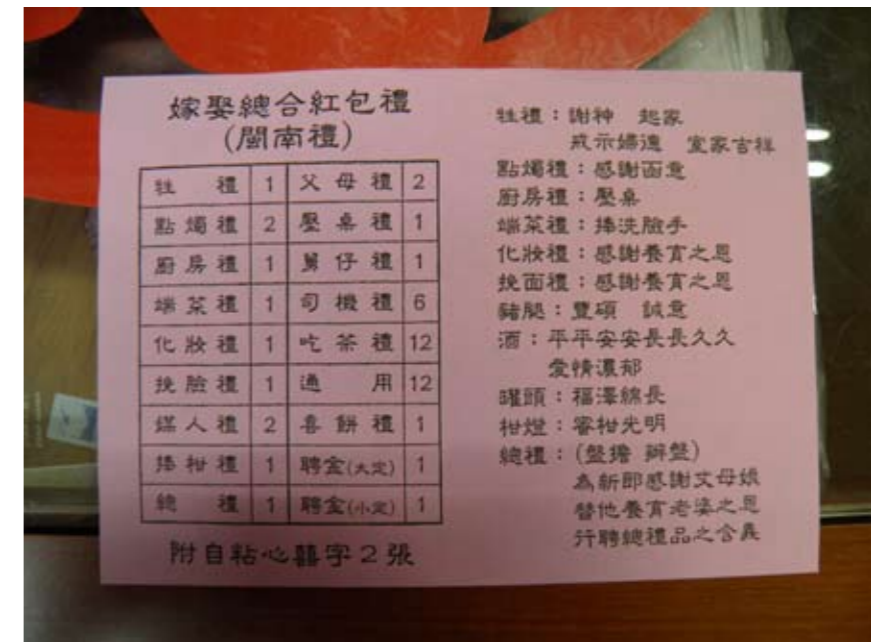 嫁娶總合紅包禮
(閩南禮)
牲禮 1 父母禮 2
點燭禮 2 壓桌禮 1
廚房禮 1 舅仔禮 1
端菜禮 1 司機禮 6
化妝禮 1 吃茶禮 12
挽臉禮 1 通用 12
媒人禮 2 喜餅禮 1
捧柑禮 1 聘金(大定) 1
總禮 1 聘金(小定) 1
附自粘心囍字2張
牲禮：謝神 起家
戒示婦德 室家吉祥
點燭禮：感謝函意
廚房禮：壓桌
端菜禮：捧洗臉手
化妝禮：感謝養育之恩
挽面禮：感謝養育之恩
豬腿：豐碩 誠意
酒：平平安安長長久久
愛情濃郁
罐頭：福澤綿長
柑燈：蜜柑光明
總禮：(盤擔 辦盤)
為新郎感謝丈母娘
替他養育老婆之恩
行聘總禮品之含義